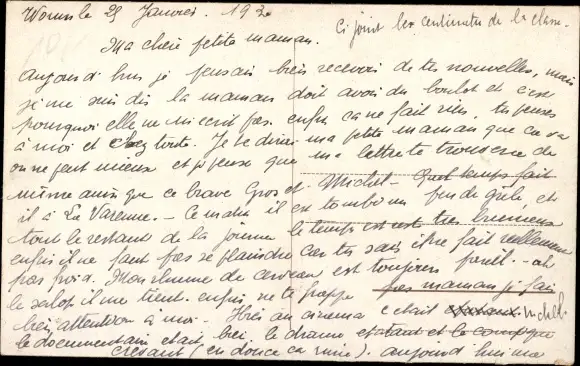 Worms le 25 Janvier. 192
Ci joint les centimètres de la classe.
Ma chère petite maman.
Aujourd'hui je pensais bien recevoir de tes nouvelles, mais
je me suis dis la maman doit avoir du boulot et c'est
pourquoi elle ne m'ecrit pas. enfin ca ne fait rien, tu penses
à moi et c'est tout. Je te dirai ma petite maman que ca va
on ne peut mieux et je pense que ma lettre te trouvera de
même ainsi que ce brave Gros et Michel - Quel temps fait
il à La Varenne. - Ce matin il est tombé un peu de grêle, et
tout le restant de la journée le temps est très brumeux
enfin il ne faut pas se plaindre car tu sais il ne fait réellement
pas froid. Mon rhume de cerveau est toujours pareil. - ah
le salop il me tient. enfin ne te frappe pas maman je fais
bien attention à moi - Hier au cinema c'etait Michel
le documentaire etait bien. le drame etait
crevant (en douce ca ruine). aujourd'hui ma